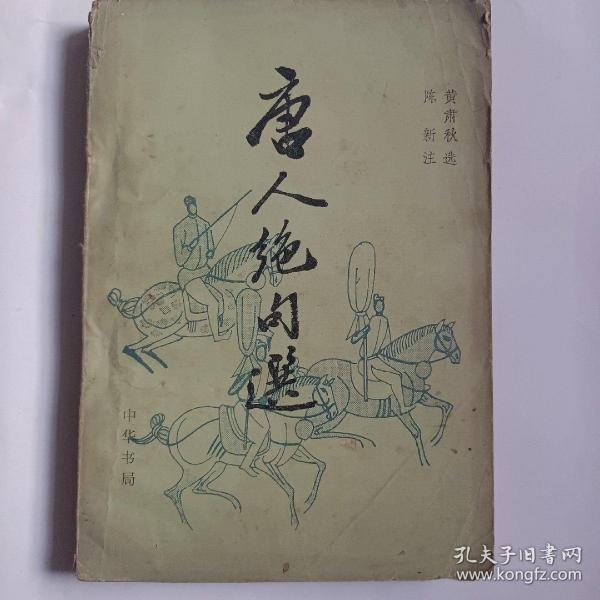 唐人绝句選
黄肃秋选
陈新注
中华书局
孔夫子旧書网
www.kongfz.com